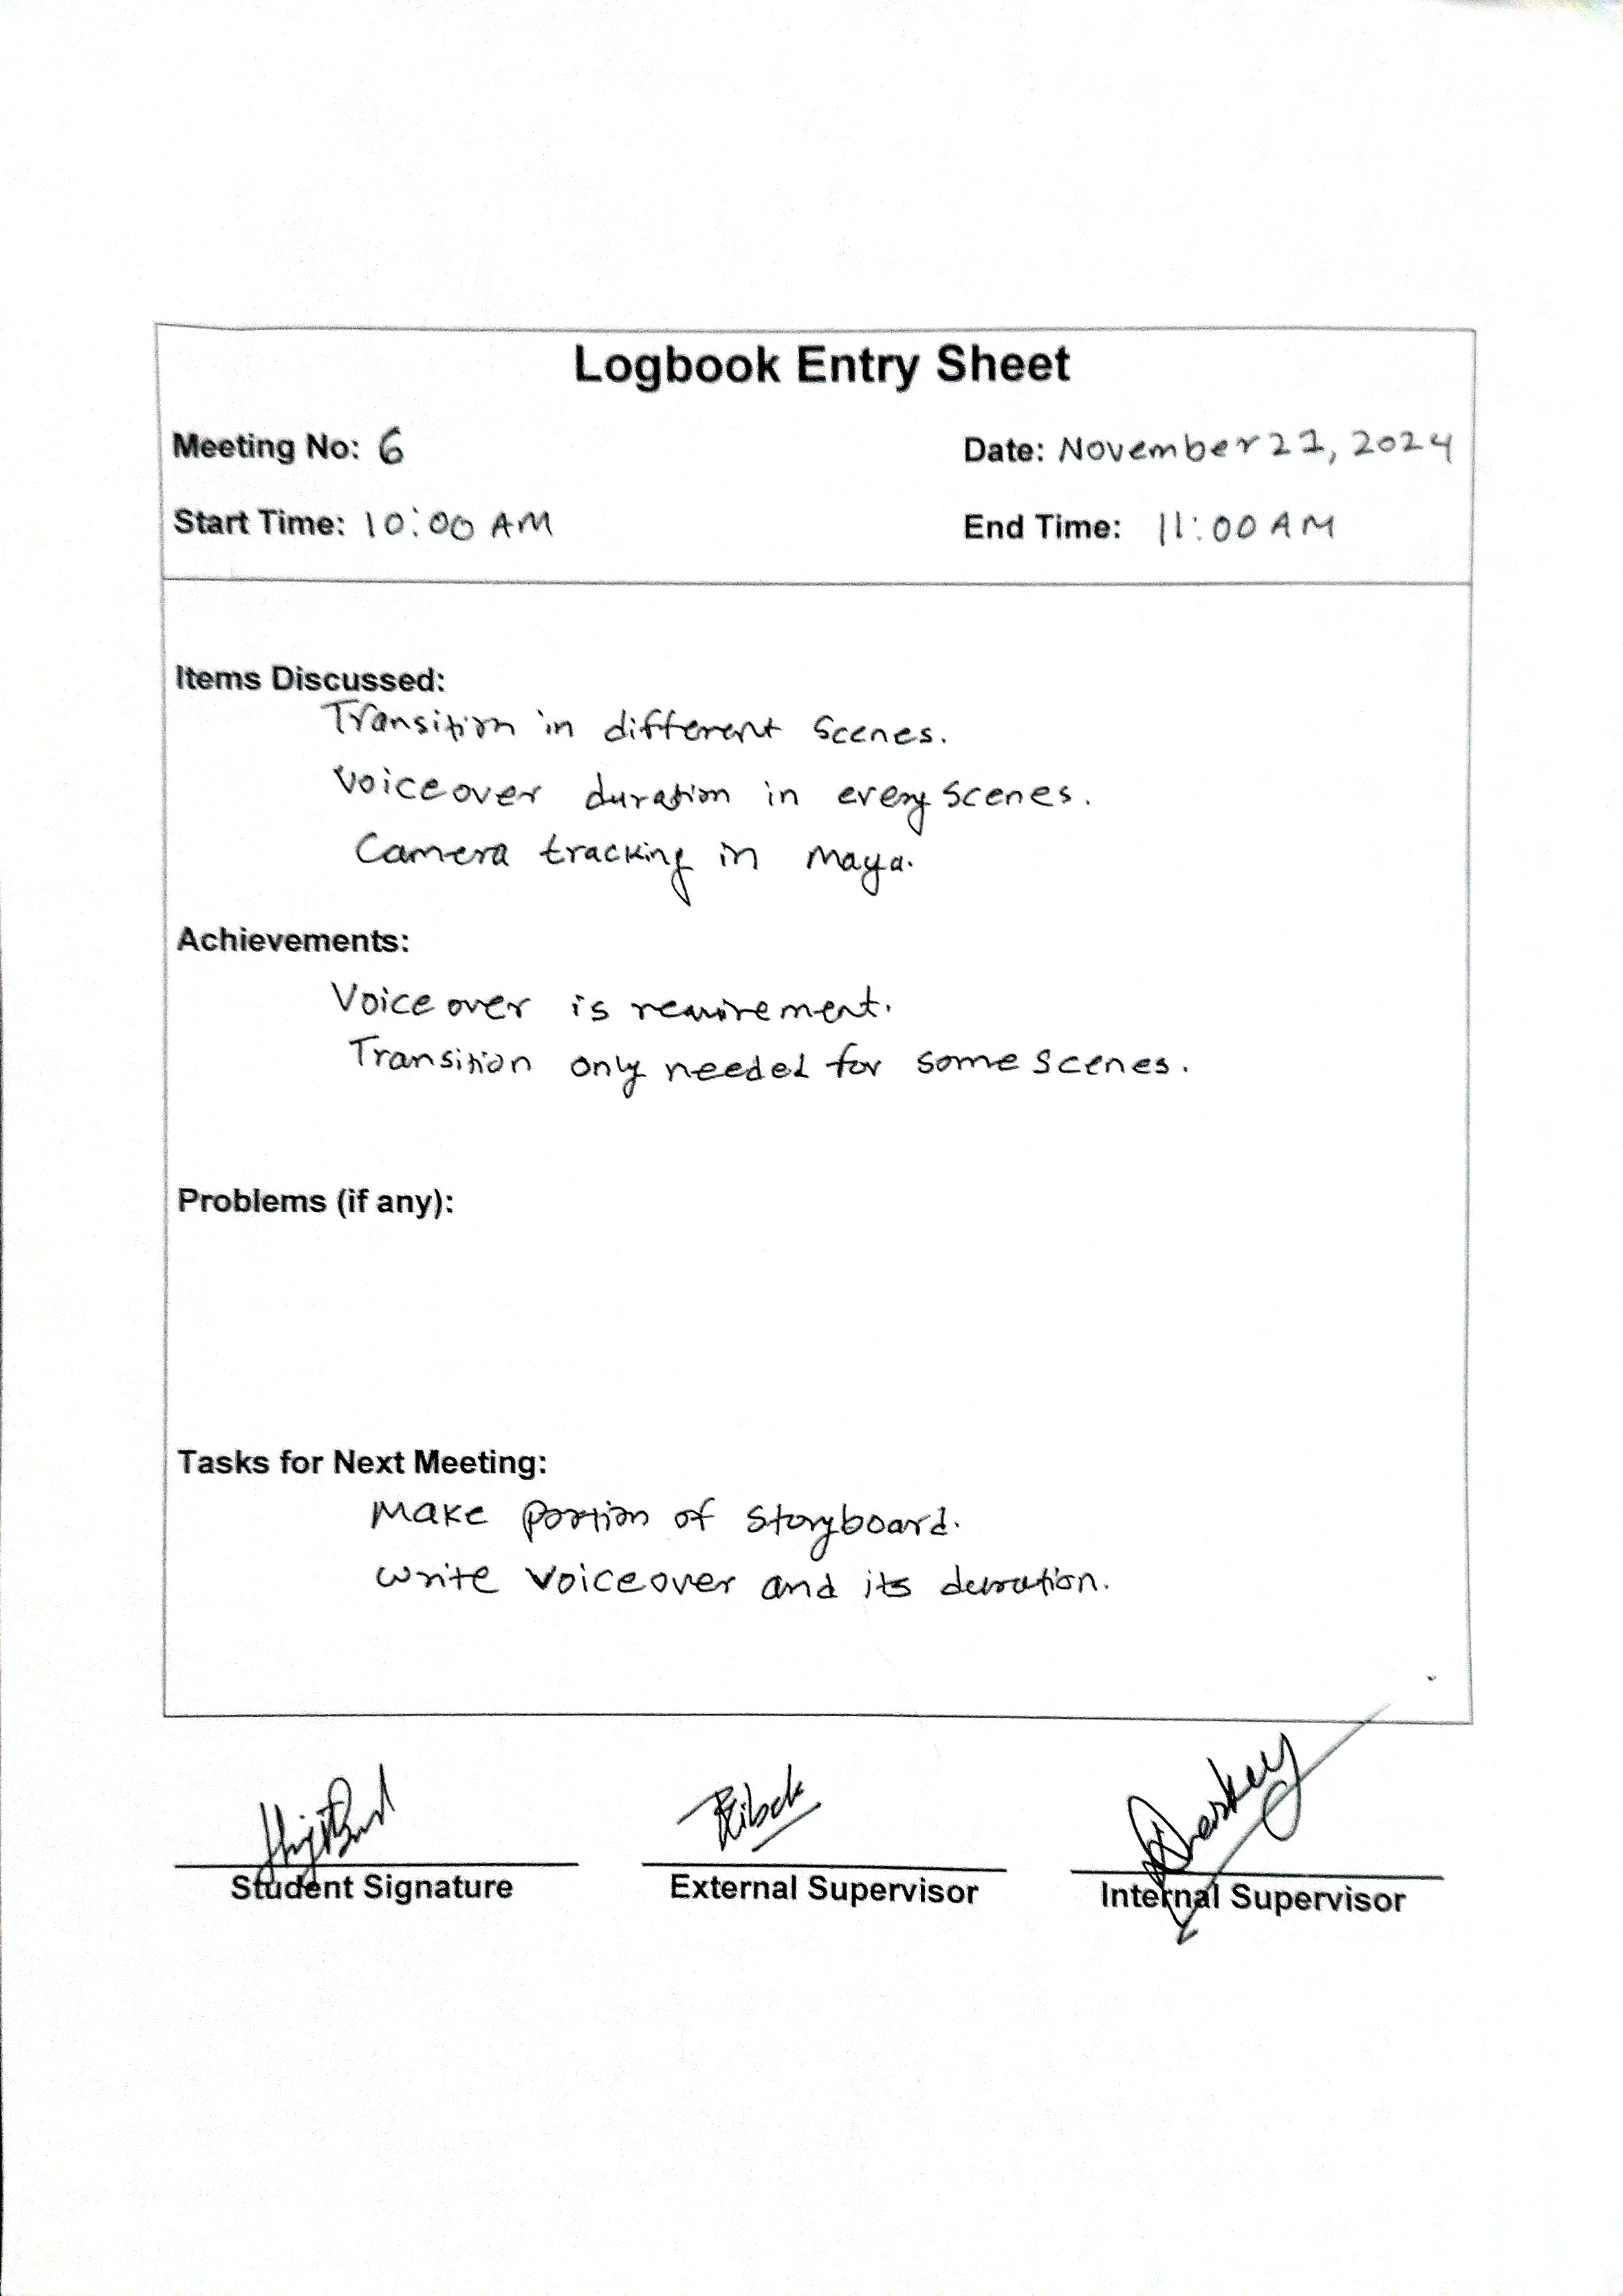 Logbook Entry Sheet
Meeting No: 6 Date: November 21, 2024
Start Time: 10:00 AM End Time: 11:00 AM
Items Discussed:
Transition in different scenes.
Voiceover duration in every scenes.
Camera tracking in Maya.
Achievements:
Voice over is requirement.
Transition only needed for some scenes.
Problems (if any):
Tasks for Next Meeting:
Make portion of storyboard.
write voiceover and its duration.
Student Signature External Supervisor Internal Supervisor